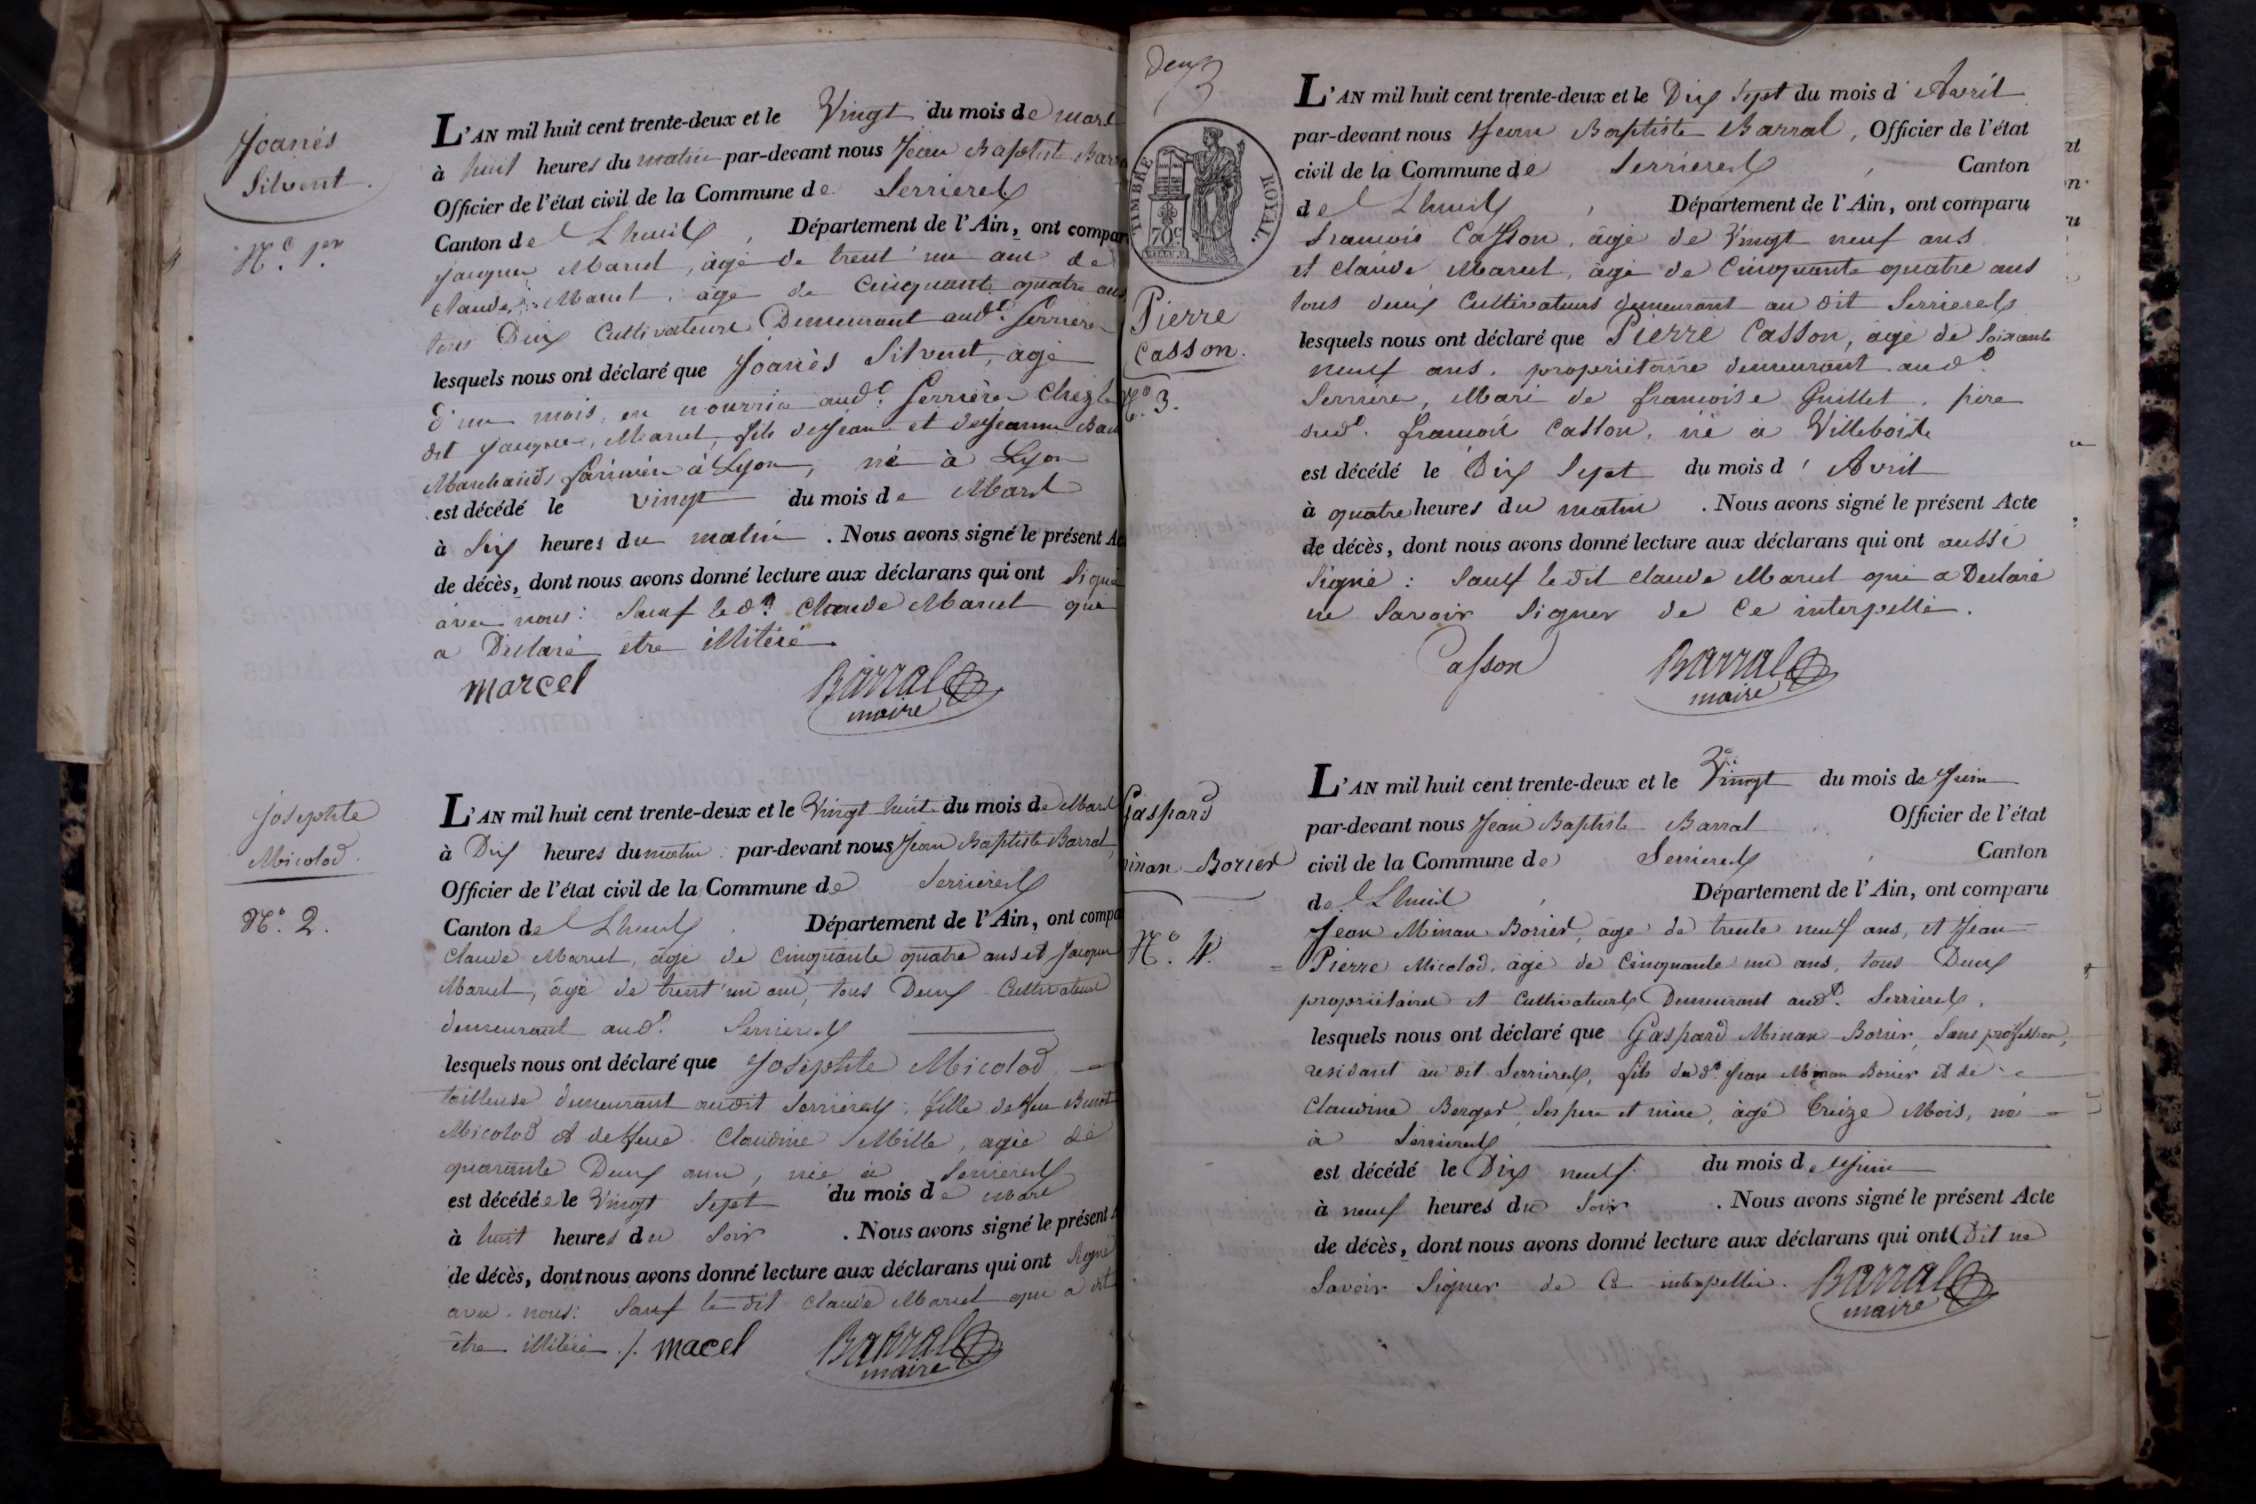 Joanès
Silvent.
N.o 1.er
L'AN mil huit cent trente-deux et le Vingt du mois de mars
à huit heures du matin par-devant nous Jean Baptiste Barra
Officier de l'état civil de la Commune de Serrieres
Canton de Lhuis, Département de l'Ain, ont compar
Jacques Marcel, âgé de trent'un ans de
claude Marcel, âgé de Cinquante quatre ans
tous Deux Cultivateurs Demeurant aud.t Serrieres
lesquels nous ont déclaré que Joanès Silvent, âgé
d'un mois, en nourrice aud.t Serrières Chez le
dit Jacques Marcel, fils de Jean et de Jeanne
Marchands à Lyon, né à Lyon
est décédé le vingt du mois de Mars
à Six heures du matin. Nous avons signé le présent Ac
de décès, dont nous avons donné lecture aux déclarans qui ont Signé
avec nous: Sauf le d.t Claude Marcel qui
a Déclaré etre illitéré
Marcel Barral
maire
Josephte
Micolod.
N.o 2.
L'AN mil huit cent trente-deux et le Vingt huit du mois de Mars
à Dix heures du matin par-devant nous Jean Baptiste Barral,
Officier de l'état civil de la Commune de Serrieres
Canton de Lhuis, Département de l'Ain, ont compa
Claude Marcel, âgé de Cinquante quatre ans et Jacques
Marcel, âgé de trent'un ans, tous Deux Cultivateurs
demeurant aud.t Serrieres
lesquels nous ont déclaré que Josephte Micolod
tailleuse demeurant audit Serrieres, fille de feu Benoit
Micolod et de feue Claudine Mille, agée de
quarante Deux ans, née à Serrieres
est décédée le Vingt Sept du mois de Mars
à huit heures du Soir. Nous avons signé le présent A
de décès, dont nous avons donné lecture aux déclarans qui ont Signé
avec nous: Sauf le dit Claude Marcel qui a dit
être illitéré ./. Macel Barral
maire
deux
TIMBRE ROYAL.
70c
Pierre
Casson.
N.o 3.
L'AN mil huit cent trente-deux et le Dix Sept du mois d'Avril
par-devant nous Jean Baptiste Barral, Officier de l'état
civil de la Commune de Serrieres, Canton
de Lhuis, Département de l'Ain, ont comparu
francois Casson, âgé de Vingt neuf ans
et claude Marcel, âgé de Cinquante quatre ans
tous deux Cultivateurs demeurant au dit Serrieres
lesquels nous ont déclaré que Pierre Casson, âgé de Soixante
neuf ans, propriétaire demeurant aud.t
Serriere, Mari de francoise Guillet, père
dud.t francois Casson, né à Villebois
est décédé le Dix Sept du mois d'Avril
à quatre heures du matin. Nous avons signé le présent Acte
de décès, dont nous avons donné lecture aux déclarans qui ont aussi
Signé: Sauf le dit claude Marcel qui a Déclaré
ne Savoir Signer de Ce interpellé.
Casson Barral
maire
Gaspard
inan Borier
N.o 4.
L'AN mil huit cent trente-deux et le Vingt du mois de Juin
par-devant nous Jean Baptiste Barral Officier de l'état
civil de la Commune de Serrieres, Canton
de Lhuis, Département de l'Ain, ont comparu
Jean Minan Borier, âgé de trente neuf ans, et Jean
Pierre Micolod, âgé de Cinquante un ans, tous Deux
propriétaires et Cultivateurs Demeurant aud.t Serrieres,
lesquels nous ont déclaré que Gaspard Minan Borier, Sans profession,
residant au dit Serrieres, fils dud.t Jean Minan Borier et de
Claudine Berger, Ses pere et mère, âgé treize Mois, né
à Serrieres
est décédé le Dix neuf du mois de Juin
à neuf heures du Soir. Nous avons signé le présent Acte
de décès, dont nous avons donné lecture aux déclarans qui ont Dit ne
Savoir Signer de Ce interpellés. Barral
maire